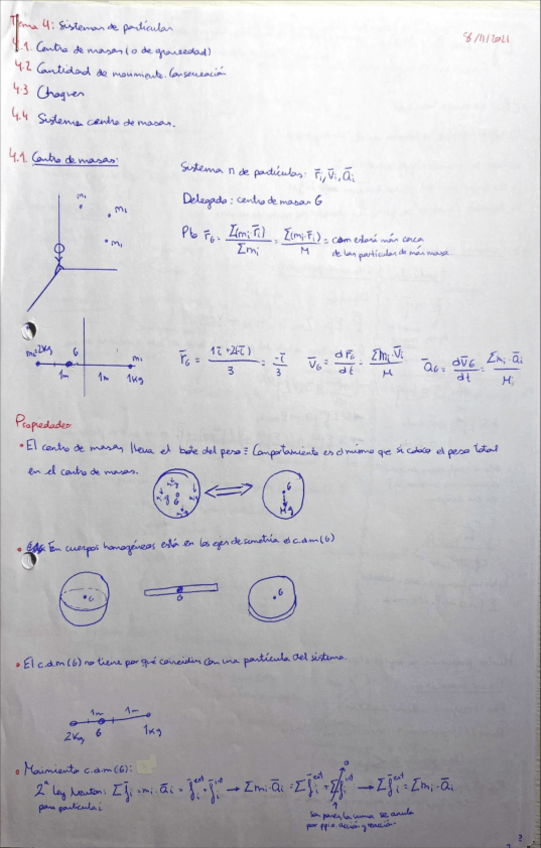 Tema 4: Sistemas de partículas
8/11/2021
4.1. Centro de masas (o de gravedad)
4.2 Cantidad de movimiento. Conservación
4.3 Choques
4.4 Sistema centro de masas.
4.1. Centro de masas:
Sistema n de partículas: r̄i, v̄i, āi
Delegado: centro de masas G
r̄G = Σ(mi·r̄i)/Σmi = Σ(mi·r̄i)/M = estará más cerca
de las partículas de más masa.
m1
m1
m1
m2=2Kg G m1
1m 1m 1Kg
r̄G = (1ī+2(-ī))/3 = -ī/3 v̄G = dr̄G/dt = Σmi·v̄i/M āG = dv̄G/dt = Σmi·āi/Mi
Propiedades:
• El centro de masas lleva el del peso = Comportamiento es el mismo que si coloco el peso total
en el centro de masas.
G G
Mg
• En cuerpos homogéneos está en los ejes de simetría el c.d.m (G)
G G G
• El c.d.m (G) no tiene por qué coincidir con una partícula del sistema.
1m 1m
2Kg G 1Kg
• Movimiento c.d.m (G):
2ª ley Newton: Σf̄i = mi·āi = f̄i^ext + f̄i^int → Σmi·āi = Σf̄i^ext + Σf̄i^int → Σf̄i^ext = Σmi·āi
para partícula i
0
Son pares la suma se anula
por ppio acción y reacción
2